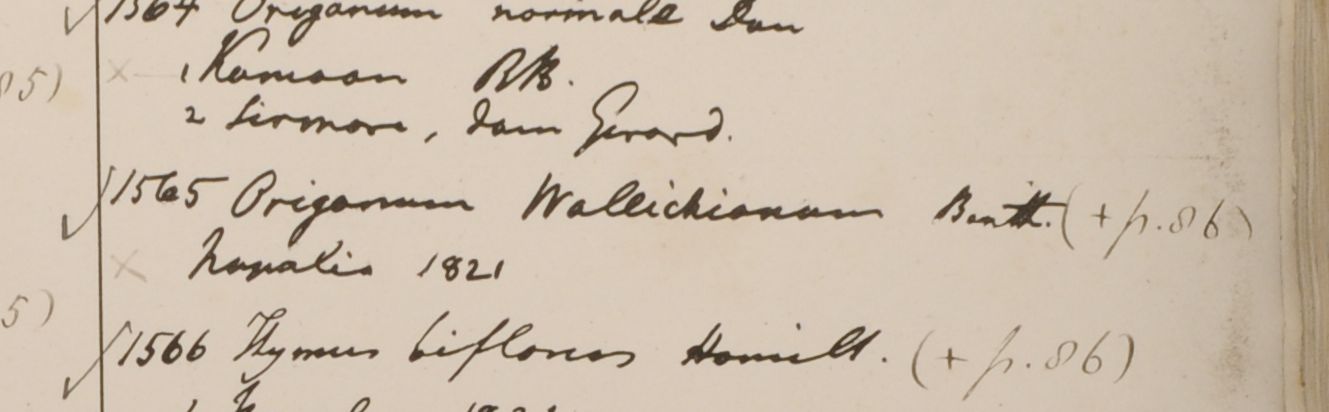 1564 Origanum normale Don
85) × 1 Kamaon RB.
2 Sirmore, Dom Gerard.
1565 Origanum Wallichianum Benth. (+ p. 86)
× Napalia 1821
5)
1566 Thymus biflorus Hamilt. (+ p. 86)